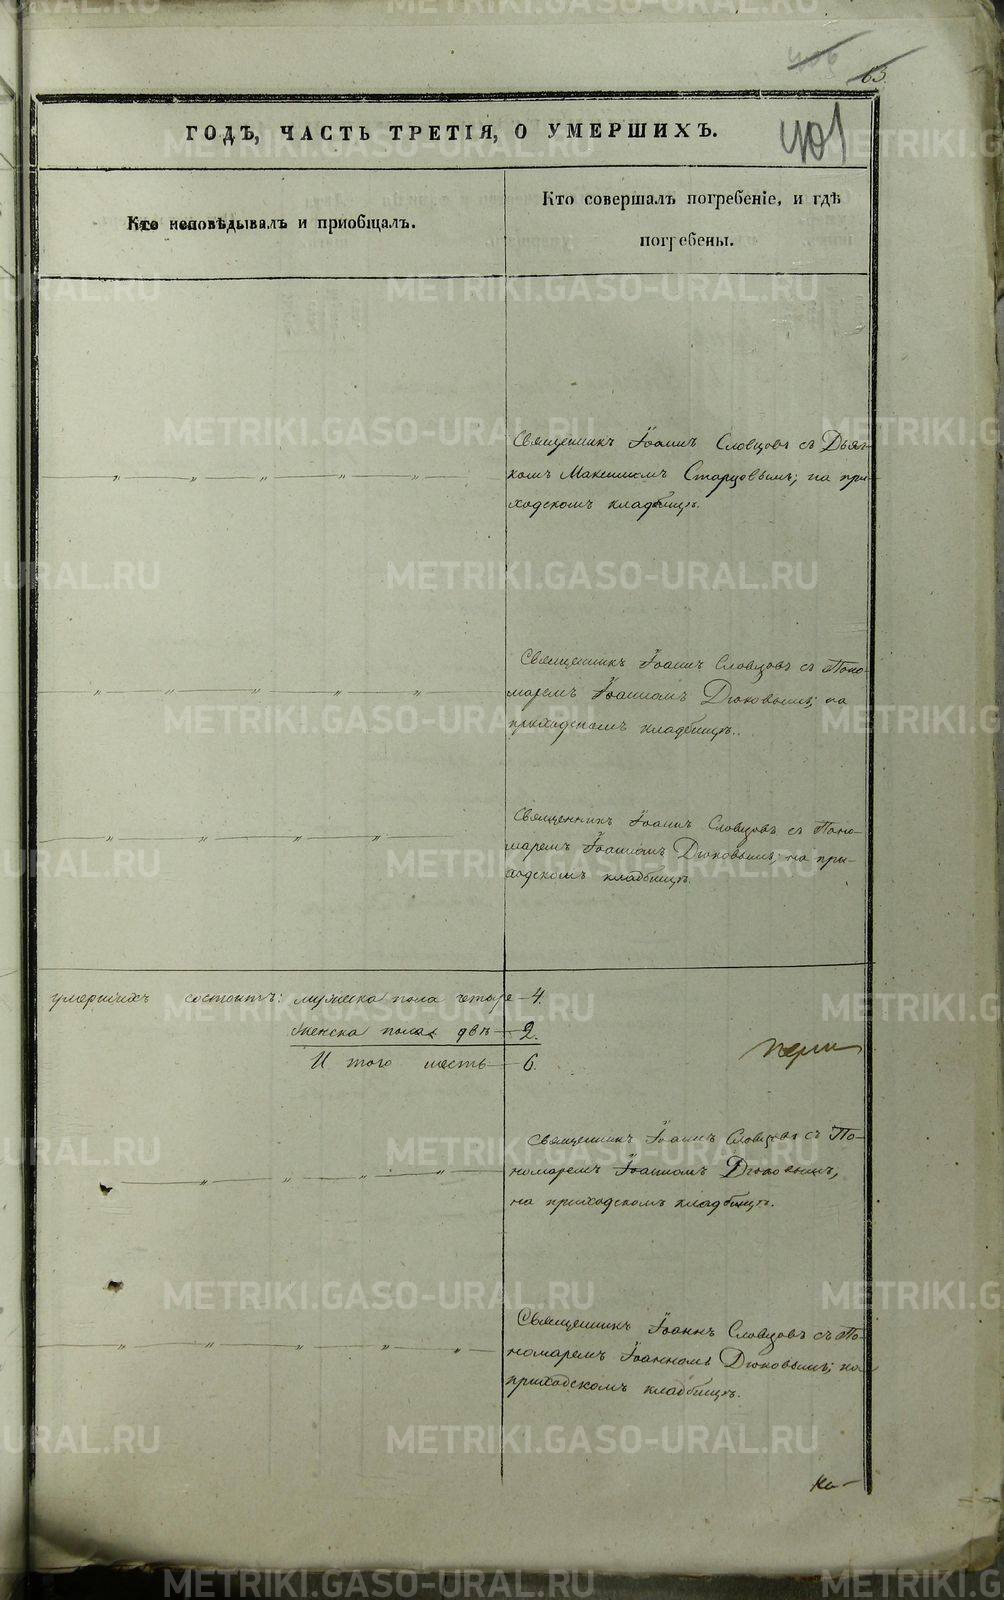 63.
401
ГОДѢ, ЧАСТЬ ТРЕТІЯ, О УМЕРШИХЪ.
Кто исповѣдывалъ и приобщалъ.
Кто совершалъ погребеніе, и гдѣ
погребены.
Священникъ Іоаннъ Словцовъ съ Дьяч-
комъ Максимомъ Старцовымъ; на при-
ходскомъ кладбищѣ.
Священникъ Іоаннъ Словцовъ съ Поно-
маремъ Іоанномъ Дюковымъ; на
приходскомъ кладбищѣ.
Священникъ Іоаннъ Словцовъ съ Поно-
маремъ Іоанномъ Дюковымъ; на при-
ходскомъ кладбищѣ.
умершихъ состоитъ: мужеска пола четыре — 4.
Женска пола двѣ — 2.
И того шесть — 6.
Священникъ Іоаннъ Словцовъ съ По-
номаремъ Іоанномъ Дюковымъ,
на приходскомъ кладбищѣ.
Священникъ Іоаннъ Словцовъ съ По-
номаремъ Іоанномъ Дюковымъ; на
приходскомъ кладбищѣ.
METRIKI.GASO-URAL.RU